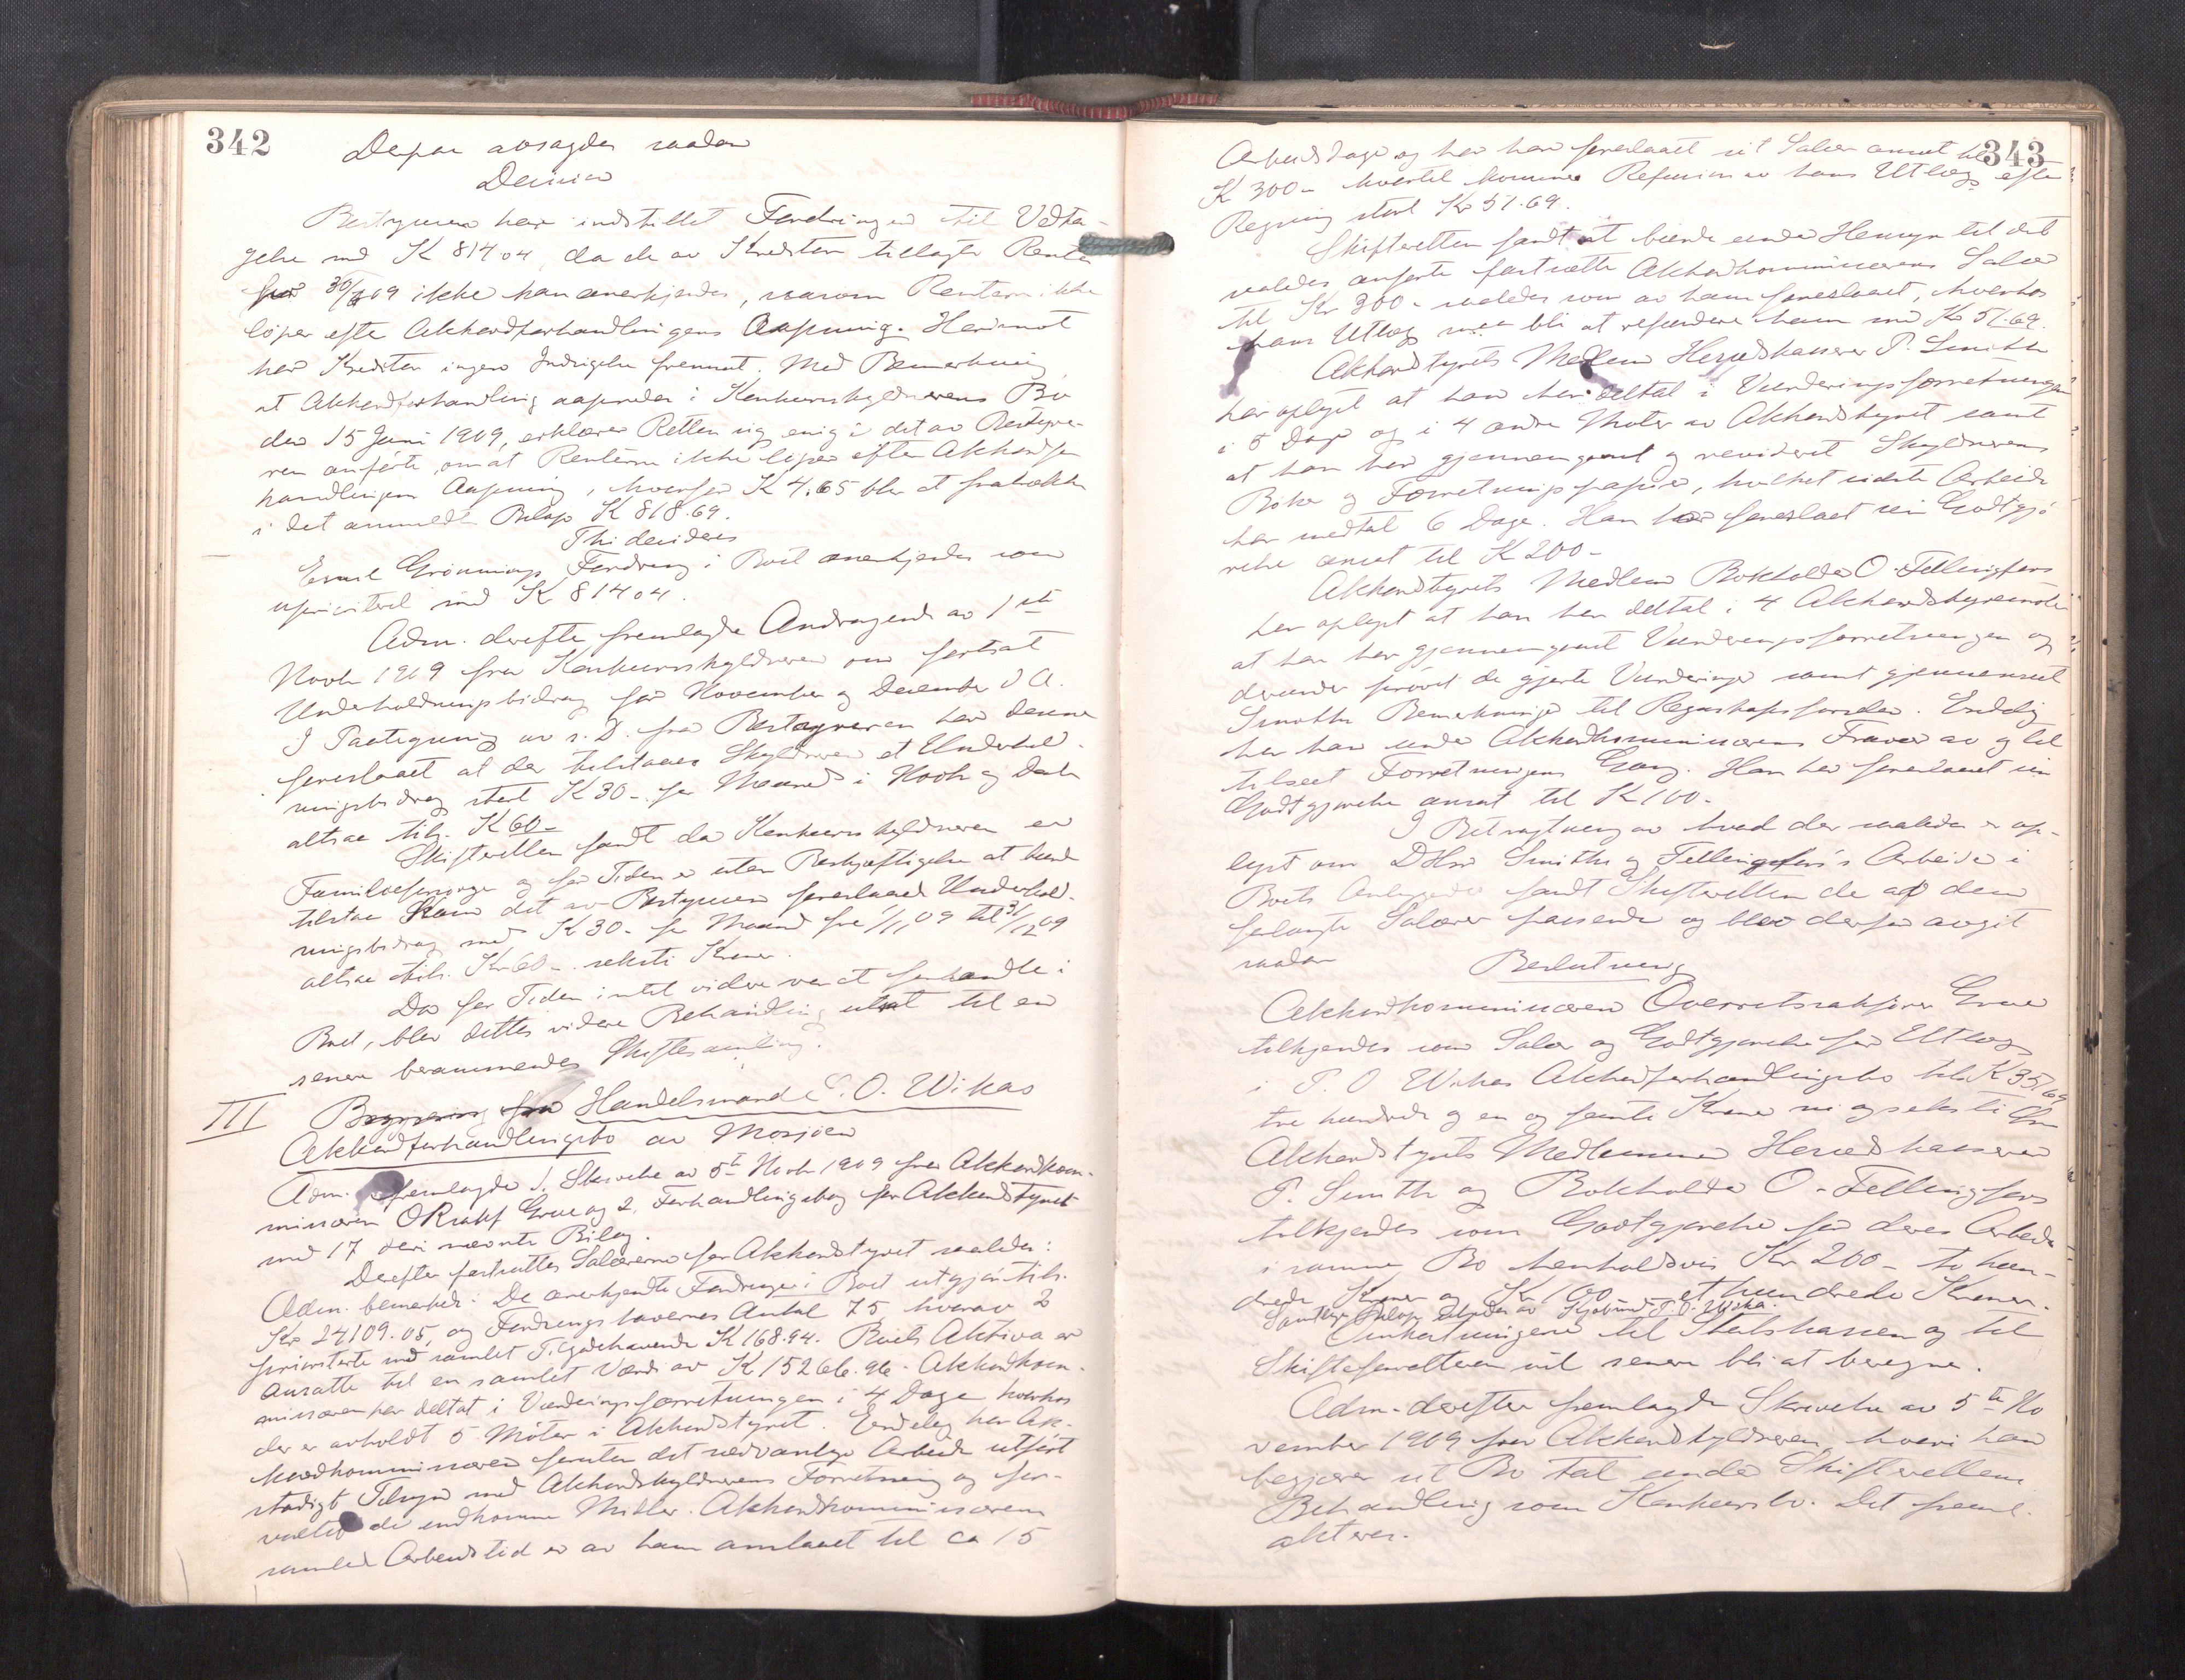 342
Derpaa avsagdes saadan
Decision
Bestyreren har indstillet Fordringen til Vedta-
gelse med K 814 04, da de av Kreditor tillagte Renter
fra 30/6 09 ikke kan anerkjendes, saasom Renterne ikke
løper efter Akkordforhandlingens Aapning. Herimot
har Kreditor ingen Indsigelse fremsat. Med Bemerkning
at Akkordforhandling aapnedes i Konkursskyldnerens Bo
den 15 Juni 1909, erklærer Retten sig enig i det av Bestyre-
ren anførte, om at Renterne ikke løper efter Akkordfor
handlingens Aapning, hvorfor K 4.65 blir at fratrække
i det anmeldte Beløp K 818.69.
Thi decideres
Emil Grønnings Fordring i Boet anerkjendes som
uprioritert med K 814 04.
Adm. derefter fremlagde Andragende av 1ste
Novbr 1909 fra Konkursskyldneren om fortsat
Underholdningsbidrag for November og December d A.
I Paategning av s. D. fra Bestyreren har denne
foreslaaet at der tilstaaes Skyldneren et Underhold-
ningsbidrag stort K 30- pr Maaned i Novbr og Decbr
altsaa tils. K 60-
Skifteretten fandt da Konkursskyldneren er
Familieforsørger og for Tiden er uten Beskjæftigelse at burde
tilstaa ham det av Bestyreren foreslaaede Underhold-
ningsbidrag med K 30- pr Maaned fra 1/11 09 til 31/12 09
altsaa tils. Kr 60- seksti Kroner.
Da for Tiden intet videre var at forhandle i
Boet, blev dettes videre Behandling utsat til en
senere berammendes Skiftesamling.
III Handelsmand P. O. Wikas
Akkordforhandlingsbo av Mosjøen
Adm. fremlagde 1. Skrivelse av 5te Novbr 1909 fra Akkordkom-
missæren ORsakf Grue og 2. Forhandlingsbog for Akkordstyret
med 17 deri nævnte Bilag.
Derefter fastsattes Salærerne for Akkordstyret saaledes:
Adm. bemerket: De anerkjendte Fordringer i Boet utgjør tils.
Kr 24109.05, og Fordringshavernes Antal 75, hvorav 2
prioriterte med samlet Tilgodehavende K 168.94. Boets Aktiva er
ansatte til en samlet Værdi av K 15266.96. Akkordkom-
missæren har deltat i Vurderingsforretningen i 4 Dage hvorhos
der er avholdt 5 Møter i Akkordstyret. Endelig har Ak-
kordkommissæren foruten det sædvanlige Arbeide utført
stadigt Tilsyn med Akkordskyldnerens Forretning og for-
valtet de indkomne Midler. Akkordkommissærens
samlede Arbeidstid er av ham anslaaet til ca 15
343
Arbeidsdage og har han foreslaaet sit Salær ansat til
K 300- hvortil kommer Refusion av hans Utlæg efter
Regning stort Kr 51.69.
Skifteretten fandt at burde under Hensyn til det
saaledes anførte fastsætte Akkordkommissærens Salær
til Kr 300- saaledes som av ham foreslaaet, hvorhos
hans Utlæg maa bli at refundere ham med Kr 51.69.
Akkordstyrets Medlem Herredskasserer P. Smith
har oplyst at han har deltat i Vurderingsforretningen
i 5 Dage og i 4 andre Møter av Akkordstyret samt
at han har gjennemgaaet og revideret Skyldnerens
Bøker og Forretningspapirer, hvilket sidste Arbeide
har medtat 6 Dage. Han har foreslaaet sin Godtgjø
relse ansat til K 200-
Akkordstyrets Medlem Bokholder O. Fellingfors
har oplyst at han har deltat i 4 Akkordstyremøter
at han har gjennemgaaet Vurderingsforretningen og
derunder prøvet de gjorte Vurderinger samt gjennemset
Smiths Bemerkninger til Regnskapsførselen. Endelig
har han under Akkordkommissærens Fravær av og til
tilseet Forretningens Gang. Han har foreslaaet sin
Godtgjørelse ansat til Kr 100-
I Betragtning av hvad der saaledes er op-
lyst om DHrr Smiths og Fellingfors's Arbeide i
Boets Anliggender fandt Skifteretten de av dem
forlangte Salærer passende og blev derfor avgit
saadan
Beslutning
Akkordkommissæren Overretssakfører Grue
tilkjendes som Salær og Godtgjørelse for Utlæg
i P. O Wikas Akkordforhandlingsbo tils K 351/69
tre hundrede og en og femti Kroner ni og seksti Øre
Akkordstyrets Medlemmer Herredskasserer
P. Smith og Bokholder O. Fellingfors
tilkjendes som Godtgjørelse for deres Arbeide
i samme Bo henholdsvis Kr 200- to hun-
drede Kroner og Kr 100 - et hundrede Kroner.
Samtlige Beløp utredes av Kjøbmd P. O. Wika.
Omkostningene til Statskassen og til
Skifteforvalteren vil senere bli at beregne.
Adm. derefter fremlagde Skrivelse av 5te No
vember 1909 fra Akkordskyldneren hvori han
begjærer sit Bo tat under Skifterettens
Behandling som Konkursbo. Det freml.
akteres.